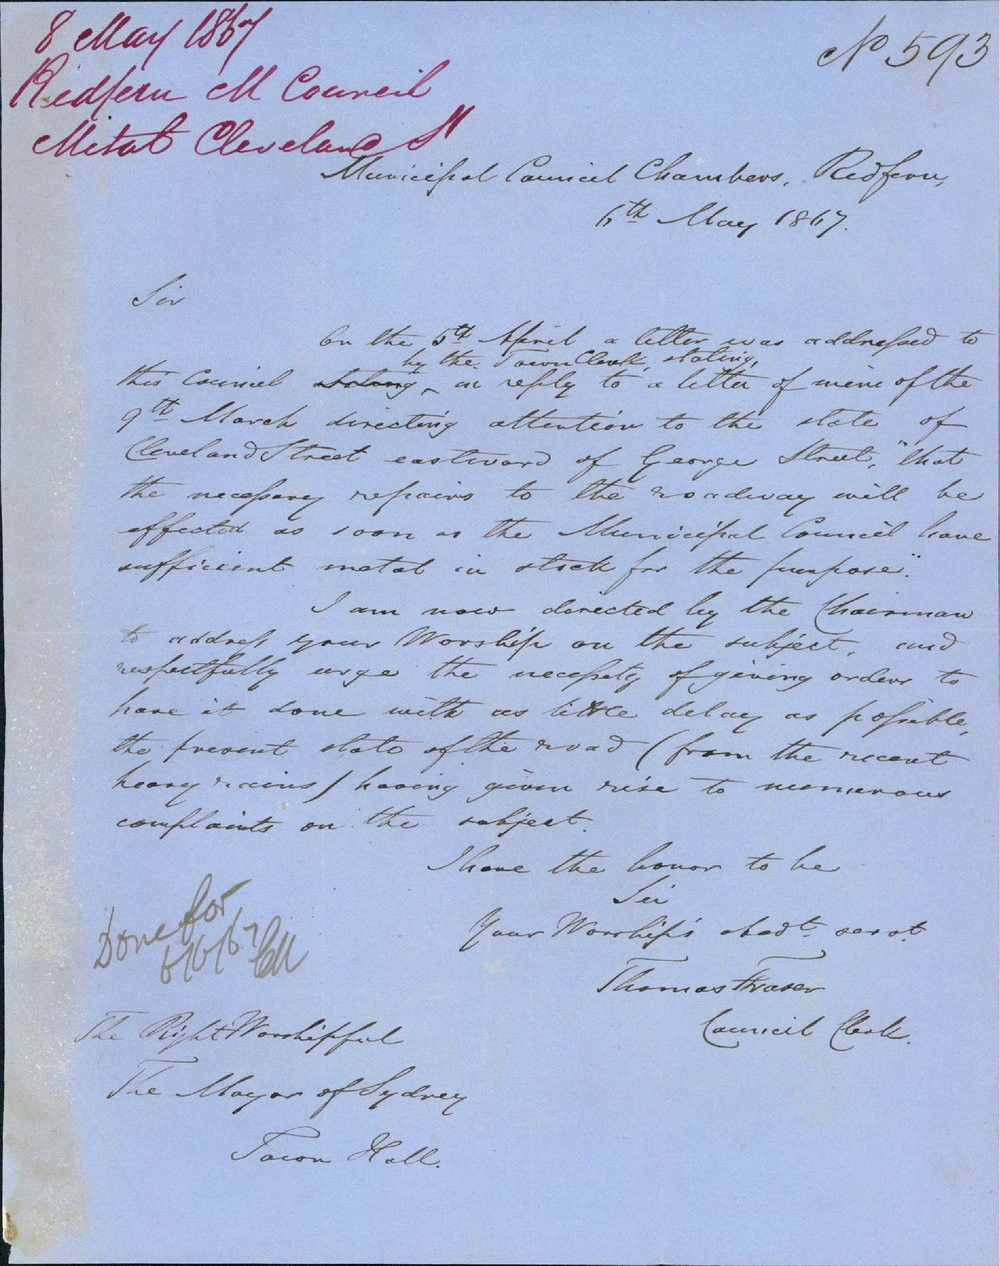 8 May 1867
Redfern M Council
Metal Cleveland St
No 593
Municipal Council Chambers, Redfern,
6th May 1867.
Sir
On the 5th April a letter was addressed to
by the Town Clerk, stating,
this Council stating, in reply to a letter of mine of the
9th March directing attention to the state of
Cleveland Street eastward of George Street, "that
the necessary repairs to the roadway will be
effected as soon as the Municipal Council have
sufficient metal in stock for the purpose".
I am now directed by the Chairman
to address your Worship on the subject, and
respectfully urge the necessity of giving orders to
have it done with as little delay as possible,
the present state of the road (from the recent
heavy rains) having given rise to numerous
complaints on the subject.
I have the honor to be
Sir
Your Worship's obedt. servt.
Thomas Fraser
Council Clerk.
Done for
6/6/67
The Right Worshipful
The Mayor of Sydney
Town Hall.